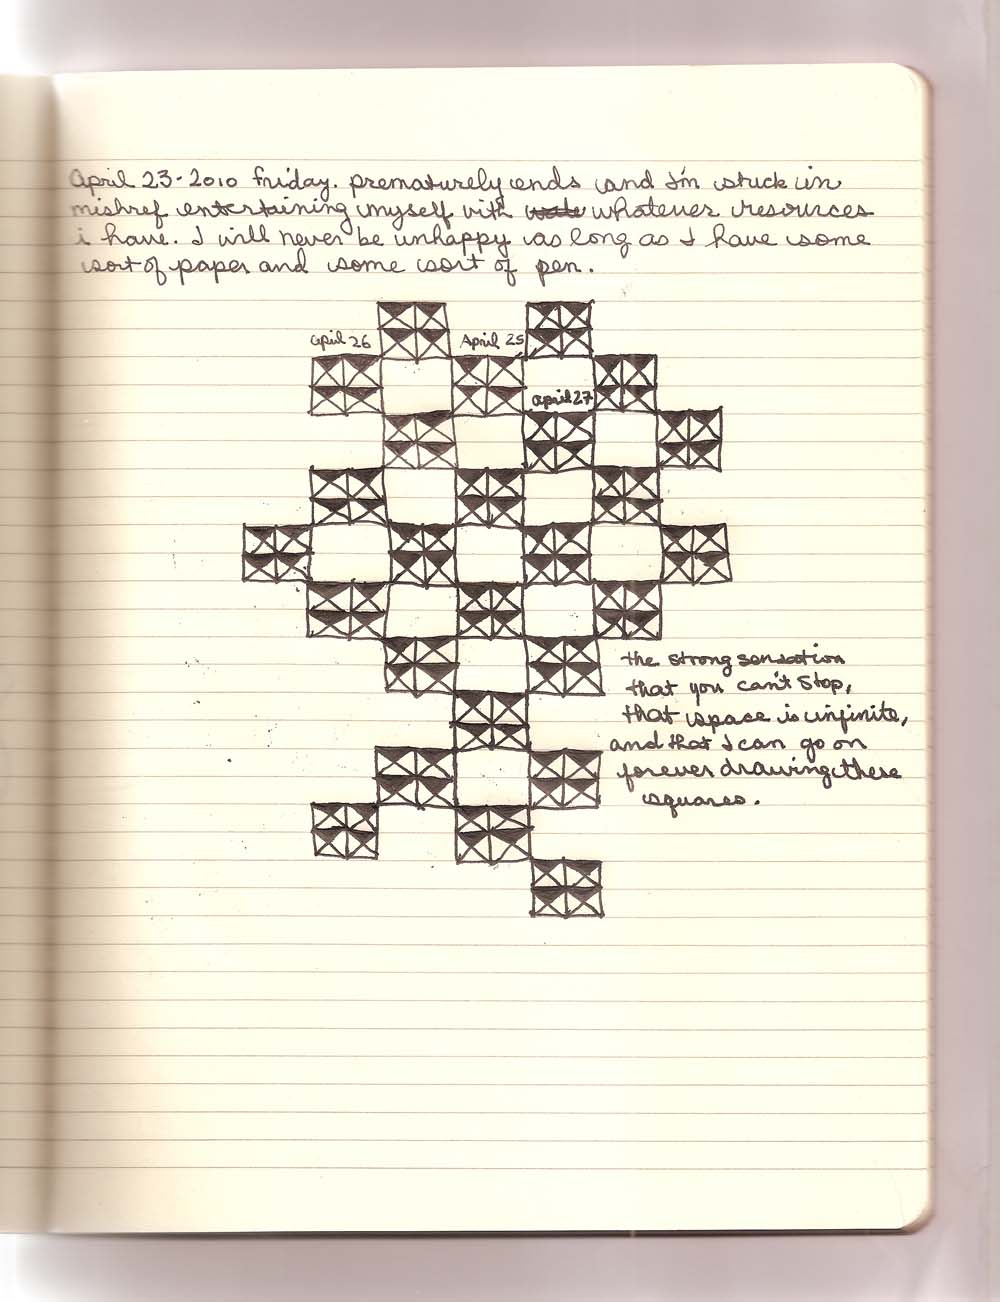 April 23-2010 friday. prematurely ends and I'm stuck in
mishref entertaining myself with whatever resources
i have. I will never be unhappy as long as I have some
sort of paper and some sort of pen.
april 26
April 25
april 27
the strong sensation
that you can't stop,
that space is infinite,
and that I can go on
forever drawing these
squares.